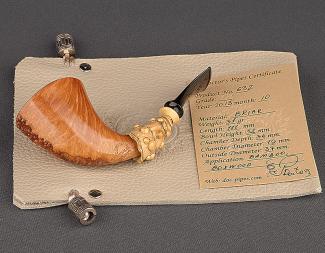 Doctor's Pipes Certificate
Product No: 632
Grade:
Year: 2013 month: 10
Material: BRIAR
Weight: gr
Length: mm
Bowl Height: mm
Chamber Depth: mm
Chamber Diameter: 19 mm
Outside Diameter: 37 mm
Application: BAMBOO,
BOXWOOD
Web: doc-pipes.com